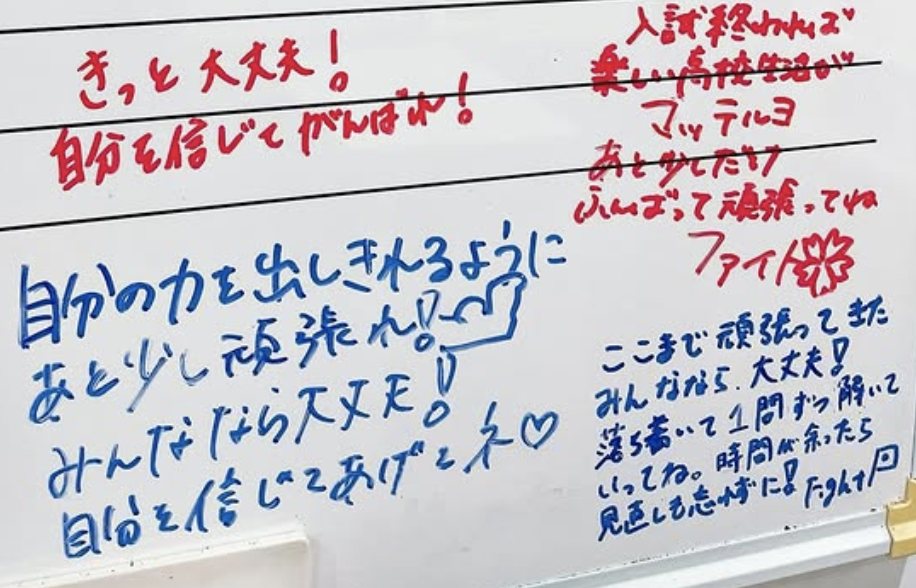 きっと大丈夫!
自分を信じてがんばれ!
入試終われば
楽しい高校生活が
マッテルヨ
あと少しだけ
ふんばって頑張ってね
ファイト
自分の力を出しきれるように
あと少し頑張れ!
みんななら大丈夫!
自分を信じてあげてネ♡
ここまで頑張ってきた
みんななら、大丈夫!
落ち着いて1問ずつ解いて
いってね。時間が余ったら
見直しも忘れずに! fight